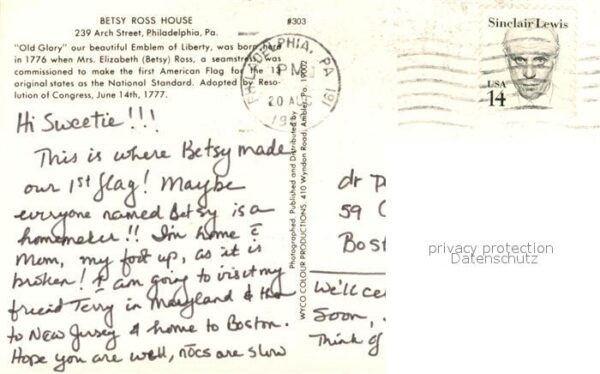 BETSY ROSS HOUSE
239 Arch Street, Philadelphia, Pa.
#303
"Old Glory" our beautiful Emblem of Liberty, was born here
in 1776 when Mrs. Elizabeth (Betsy) Ross, a seamstress was
commissioned to make the first American Flag for the 13
original states as the National Standard. Adopted by Reso-
lution of Congress, June 14th, 1777.
PHILADELPHIA, PA 191
PM
20 AUG
19
Sinclair Lewis
USA
14
Hi Sweetie!!!
This is where Betsy made
our 1st flag! Maybe
everyone named Betsy is a
homemaker!! I'm home c̄
Mom, my foot up, as it is
broken! I am going to visit my
friend Terry in Maryland & then
to New Jersey & home to Boston.
Hope you are well, nōcs are slow
Photographed, Published and Distributed by
WYCO COLOUR PRODUCTIONS, 410 Wyndon Road, Ambler, Pa. 19002
dr
59
Bost
We'll
Soon,
Think of
privacy protection
Datenschutz